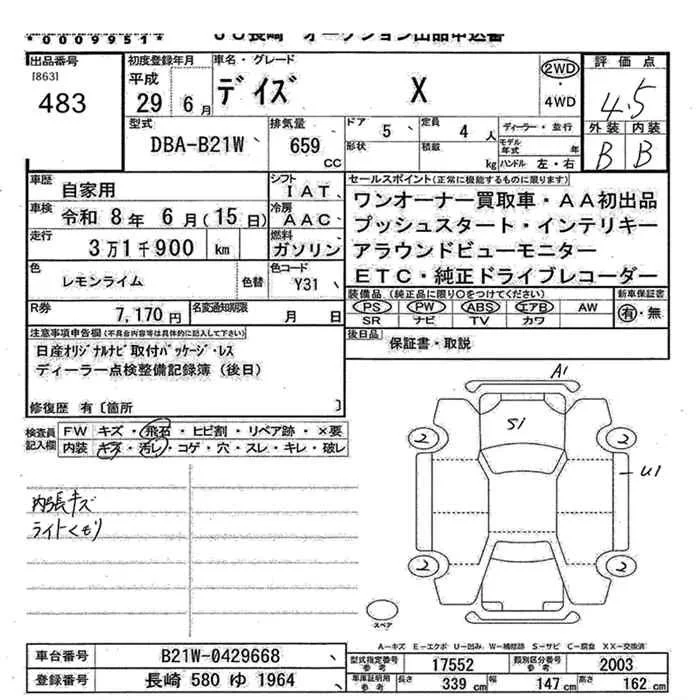 *0009951* JU長崎 オークション出品申込書
出品番号 [863] 483
初度登録年月 平成 29 6 月
車名・グレード デイズ X
2WD ・ 4WD
評価点 4.5
外装 内装
B B
型式 DBA-B21W
排気量 659 CC
ドア 5
形状
定員 4 人
積載 kg
ディーラー・並行
モデル年式 年
ハンドル 左・右
車歴 自家用
シフト IAT
車検 令和 8 年 6 月 (15 日)
冷房 AAC
走行 3 万 1 千 900 km
燃料 ガソリン
色 レモンライム 色替
色コード Y31
R券 7,170 円
名変通知期限 月 日
セールスポイント (正常に機能するものに限ります)
ワンオーナー買取車・AA初出品
プッシュスタート・インテリキー
アラウンドビューモニター
ETC・純正ドライブレコーダー
装備品 (純正品に限り○をつけてください)
PS PW ABS エアB AW
SR ナビ TV カワ
新車保証書
有・無
後日品 保証書・取説
注意事項申告欄 (不具合内容等は具体的に記入して下さい)
日産オリジナルナビ取付パッケージ・レス
ディーラー点検整備記録簿(後日)
修復歴 有〔箇所 〕
検査員記入欄
FW キズ・飛石・ヒビ割・リペア跡・×要
内装 キズ・汚レ・コゲ・穴・スレ・キレ・破レ
内張キズ
ライトくもり
A1
S1
2 2
U1
2 2
スペア
A-キズ E-エクボ U-凹み W-補修跡 S-サビ C-腐食 XX-交換済
車台番号 B21W-0429668
型式指定番号 参考 17552
類別区分番号 参考 2003
登録番号 長崎 580 ゆ 1964
車庫証明用 参考 長さ 339 cm 幅 147 cm 高さ 162 cm